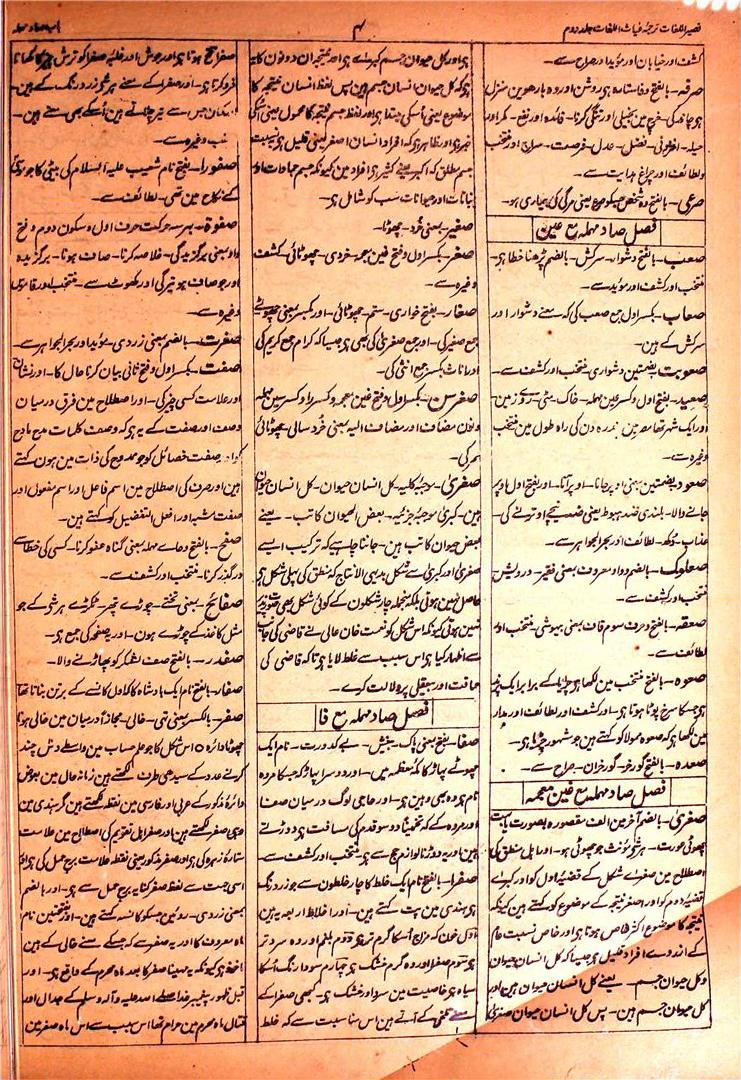 نصیر اللغات ترجمۂ غیاث اللغات جلد دوم
۴
باب صاد مہملہ
کشف اور خیابان اور مؤید اور صراح سے۔
صرفہ۔ بالفتح وفا ستارہ ہی روشن اور وہ بارھوین منزل
ہی چاند کی۔ خرچ مین بخیلی اور تنگی کرنا۔ فائدہ اور نفع۔ مکر اور
حیلہ۔ افزونی۔ فضل۔ عدل۔ فرصت۔ سراج اور منتخب
و لطائف اور چراغ ہدایت سے۔
صرعی۔ بالفتح وہ شخص جسکو صرع یعنی مرگی کی بیماری ہو۔
فصل صاد مہملہ مع عین
صعب۔ بالفتح دشوار۔ سرکش۔ بالضم پڑھنا خطا ہی۔
منتخب اور کشف اور مؤید سے۔
صعاب۔ بکسر اول جمع صعب کی کہ معنے دشوار اور
سرکش کے ہین۔
صعوبت۔ بضمتین دشواری۔ منتخب اور کشف سے۔
صعید۔ بفتح اول وکسر عین مہملہ۔ خاک۔ مٹی۔ روے زمین۔
اور ایک شہر تھا مصر مین پندرہ دن کی راہ طول مین منتخب
وغیرہ سے۔
صعود۔ بضمتین بمعنی اوپر جانا۔ اوپر آنا۔ اور بفتح اول اوپر
جانے والا۔ بلندی ضد ہبوط یعنی ضد نیچے اوترنے کی۔
عذاب۔ دکھ۔ لطائف اور بحر الجواہر سے۔
صعلوک۔ بالضم و واو معروف بمعنی فقیر۔ درویش
منتخب اور کشف سے۔
صعقہ۔ بالفتح و حرف سوم قاف بمعنی بیہوشی۔ منتخب اور
لطائف سے۔
صعوہ۔ بالفتح منتخب مین لکھا ہی چڑیا کے برابر ایک پرند
ہی جسکا سرخ پوٹا ہوتا ہی۔ اور کشف اور لطائف اور مدار
مین لکھا ہی کہ صعوہ مولا کو کہتے ہین جو مشہور چڑیا ہی۔
صعدہ۔ بالفتح گورخر۔ گورخران۔ صراح سے۔
فصل صاد مہملہ مع غین معجمہ
صغریٰ۔ بالضم آخر مین الف مقصورہ بصورت یا ہے
چھوٹی عورت۔ ہر شی مؤنث جو چھوٹی ہو۔ اور اہل منطق کی
اصطلاح مین صغریٰ شکل کے قضیۂ اول کو اور کبریٰ
قضیۂ دوم کو اور اصغر نتیجہ کے موضوع کو کہتے ہین کیونکہ
نتیجہ کا موضوع اکثر خاص ہوتا ہی اور خاص نسبت عام
کے از روے افراد قلیل ہی جیسا کہ کل انسان حیوان
و کل حیوان جسم۔ یعنے کل انسان حیوان ہین اور
کل حیوان جسم ہین۔ پس کل انسان حیوان صغریٰ
ہی اور کل حیوان جسم کبریٰ ہی اور نتیجہ ان دونون کا یہ
ہی کہ کل حیوان انسان جسم ہین پس لفظ انسان نتیجہ کا
موضوع یعنی اُسکی مبتدا ہی اور لفظ جسم نتیجہ کا محمول یعنی اُسکی
خبر ہی اور ظاہر ہی کہ افراد انسان اصغر یعنی قلیل ہی نسبت
جسم مطلق کہ اکبر یعنے کثیر ہی افراد مین کیونکہ جسم جمادات اور
نباتات اور حیوانات سب کو شامل ہی۔
صغیر۔ بمعنی خُرد۔ چھوٹا۔
صغر۔ بکسر اول و فتح غین معجمہ۔ خردی۔ چھوٹائی۔ کشف
وغیرہ سے۔
صغار۔ بفتح خواری۔ ستم۔ چھوٹائی۔ اور بکسر بمعنی چھوٹے
جمع صغیر کی۔ اور جمع صغریٰ کی بھی ہی جیسا کہ کرام جمع کریم کی
اور اناث بکسر جمع انثی کی۔
صغر سن۔ بکسر اول و فتح غین معجمہ و کسر را و کسر سین مہملہ
و نون مضاف اور مضاف الیہ بمعنی خُرد سالی۔ چھوٹائی
عمر کی۔
صغریٰ۔ موجبۂ کلیہ۔ کل انسان حیوان۔ کل انسان حیوان
ہین۔ کبریٰ موجبۂ جزئیہ۔ بعض الحیوان کاتب۔ یعنے
بعض حیوان کاتب ہین۔ جاننا چاہیے کہ ترکیب ایسے
صغریٰ اور کبریٰ سے شکل بدیہی الانتاج کہ منطق کی پہلی شکل ہی
حاصل نہین ہوتی بلکہ منجملہ چار شکلون کے کوئی شکل بھی صورت پذیر
نہین ہوتی کیونکہ اس شکل کو نعمت خان عالی نے قاضی کی جانب
سے اظہار کیا ہی اس سبب سے غلط لایا ہی تا کہ قاضی کی
حماقت اور بیعقلی پر دلالت کرے۔
فصل صاد مہملہ مع فا
صفا۔ بفتح بمعنی پاک۔ بیغش۔ بے کدورت۔ نام ایک
چھوٹے پہاڑ کا مکۂ معظمہ مین۔ اور دوسرا پہاڑ کہ جسکا مروہ
نام ہی وہ بھی وہین ہی۔ اور حاجی لوگ درمیان صفا
اور مروہ کے کہ تخمیناً دو سو قدم کی مسافت ہی دوڑتے
ہین اور یہ دوڑنا لوازم حج سے ہی۔ منتخب اور کشف سے۔
صفرا۔ بالفتح نام ایک خلط کا چار خلطون سے جو زرد رنگ
ہی ہندی مین پت کہتے ہین۔ اور اخلاط اربعہ یہ ہین
اول خون کہ مزاج اُسکا گرم تر ہی دوم بلغم اور وہ سرد تر
ہی سوم صفرا اور وہ گرم خشک ہی چہارم سودا رنگ اُسکا
سیاہ ہی خاصیت مین سرد اور خشک ہی۔ کبھی صفرا کے
معنے غصّے کے آتے ہین اس مناسبت سے کہ خلط
صفرا تلخ ہوتا ہی اور جوش اور غلبۂ صفرا کو ترش چیز کا کھانا
فرو کرتا ہی۔ اور صفرا کے معنے ہر شی زرد رنگ کے ہین۔
کمان جس سے تیر چلاتے ہین اُسکے بھی معنے ہین۔
منتخب وغیرہ سے۔
صفورا۔ بالفتح نام شعیب علیہ السلام کی بیٹی کا جو موسیٰ
کے نکاح مین تھی۔ لطائف سے۔
صفوۃ۔ بہر سہ حرکت حرف اول و سکون دوم و فتح
واو بمعنی برگزیدگی۔ خلاصہ کرنا۔ صاف ہونا۔ برگزیدہ
اور جو صاف ہو تیرگی اور کھوٹ سے۔ منتخب اور قاموس
وغیرہ سے۔
صفرت۔ بالضم بمعنی زردی۔ مؤید اور بحر الجواہر سے۔
صفت۔ بکسر اول و فتح ثانی بیان کرنا حال کا۔ اور نشان
اور علامت کسی چیز کی۔ اور اصطلاح مین فرق درمیان
وصف اور صفت کے یہ ہی کہ وصف کلمات مدح مادح
کو اور صفت خصائل کو جو ممدوح کی ذات مین ہون کہتے
ہین اور صرف کی اصطلاح مین اسم فاعل اور اسم مفعول اور
صفت مشبہ اور افعل التفضیل کو کہتے ہین۔
صفح۔ بالفتح و حاے مہملہ بمعنی گناہ عفو کرنا۔ کسی کی خطا سے
در گذر کرنا۔ منتخب اور کشف سے۔
صفائح۔ بمعنی تختے۔ چوڑے پتھر۔ ٹکڑے ہر شی کے جو
مثل کاغذ کے چوڑے ہون۔ اور صفحہ کی جمع ہی۔
صفدر۔ بالفتح صف لشکر کو پھاڑنے والا۔
صفار۔ بالفتح نام ایک بادشاہ کا کہ اول کانسے کے برتن بناتا تھا
صفر۔ بالکسر بمعنی تہی۔ خالی۔ مجازاً درمیان مین خالی ہو
چھوٹا دائرہ ۰ اس شکل کا جو علم حساب مین واسطے دس چند
کرنے عدد کے سیدھی طرف لکھتے ہین زمانۂ حال مین بعوض
دائرۂ مذکور کے عربی اور فارسی مین نقطہ لکھتے ہین مگر ہندی مین
وہی صفر لکھتے ہین اور صفر اہل تقویم کی اصطلاح مین علامت
ستارۂ زہرہ کی ہی اور صفر مذکور یعنی نقطہ علامت برج حمل کی ہی اور
اسی جہت سے لفظ صفر کنایہ برج حمل سے ہی۔ اور بالضم
بمعنی زردی۔ روئین جسکو کانسہ کہتے ہین۔ اور بفتحتین نام
ماہ معروف کا اور یہ صفر سے کہ جسکے معنے خالی کے ہین
اخذ ہی کیونکہ یہ مہینا صفر کا بعد ماہ محرم کے واقع ہی۔ اور
قبل ظہور پیغمبر خدا صلے اللہ علیہ وآلہ وسلم کے جدال اور
قتال ماہ محرم مین حرام تھا اس سبب سے اس ماہ صفر مین